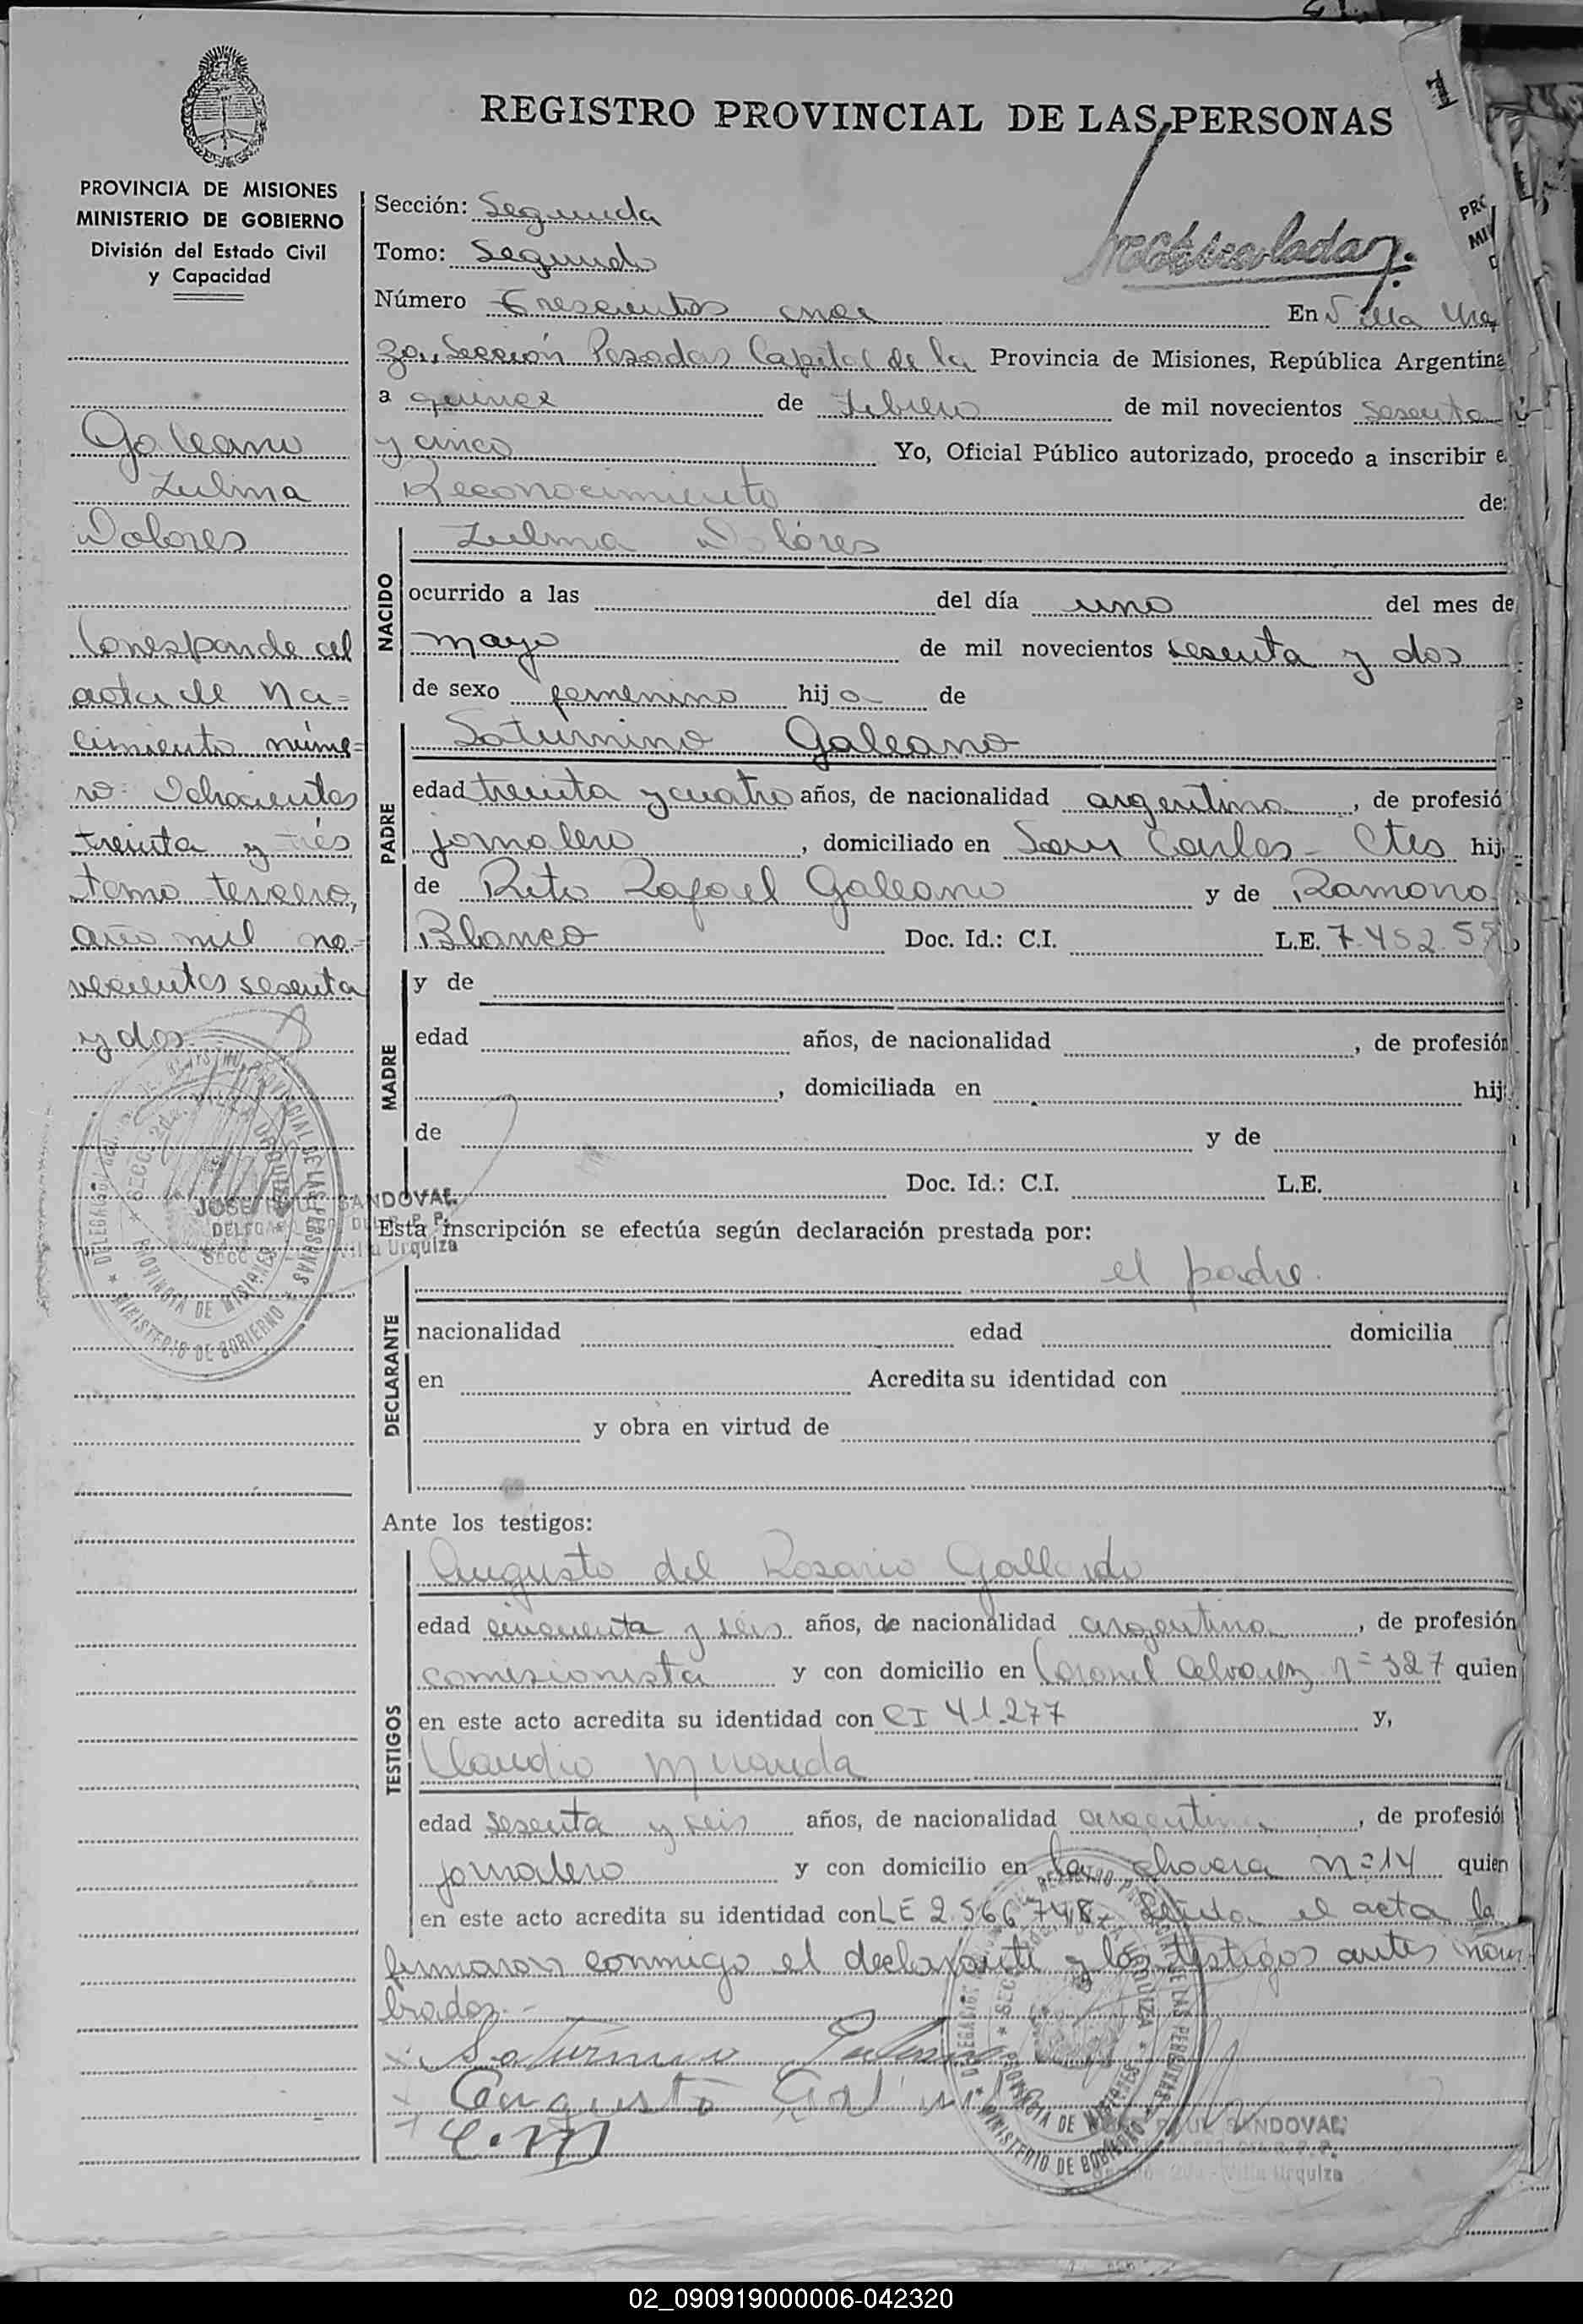 REGISTRO PROVINCIAL DE LAS PERSONAS
PROVINCIA DE MISIONES
MINISTERIO DE GOBIERNO
División del Estado Civil
y Capacidad
Galeano
Zulma
Dolores
Corresponde al
acta de Na=
cimiento núme=
ro: Ochocientos
treinta y tres
tomo tercero,
año mil no=
vecientos sesenta
y dos
SANDOVAL
Sección: Segunda
Tomo: Segundo
Número Trescientos once En Villa Urqui
za, Sección Posadas Capital de la Provincia de Misiones, República Argentina
a quince de febrero de mil novecientos sesenta
y cinco Yo, Oficial Público autorizado, procedo a inscribir e
Reconocimiento de:
NACIDO
Zulma Dolores
ocurrido a las del día uno del mes de
mayo de mil novecientos sesenta y dos
de sexo femenino hija de
PADRE
Saturnino Galeano
edad treinta y cuatro años, de nacionalidad argentina, de profesió
jornalero, domiciliado en San Carlos - Ctes hij
de Rito Rafael Galeano y de Ramona
Blanco Doc. Id.: C.I. L.E. 7.452.5
MADRE
y de
edad años, de nacionalidad , de profesión
, domiciliada en hij
de y de
Doc. Id.: C.I. L.E.
Esta inscripción se efectúa según declaración prestada por:
el padre.
DECLARANTE
nacionalidad edad domicilia
en Acredita su identidad con
y obra en virtud de
Ante los testigos:
TESTIGOS
Augusto del Rosario Gallardo
edad cincuenta y seis años, de nacionalidad argentina, de profesión
comisionista y con domicilio en Coronel Alvarez n= 327 quien
en este acto acredita su identidad con CI 41.277 y,
Claudio Miranda
edad sesenta y seis años, de nacionalidad argentina, de profesió
jornalero y con domicilio en La chacra n=14 quien
en este acto acredita su identidad con LE 2.566.748. Leída el acta la
firmaron conmigo el declarante y los testigos antes nom
brados.-
Saturnino Galeano
Augusto
C.M
SANDOVAL
Villa Urquiza
02_090919000006-042320